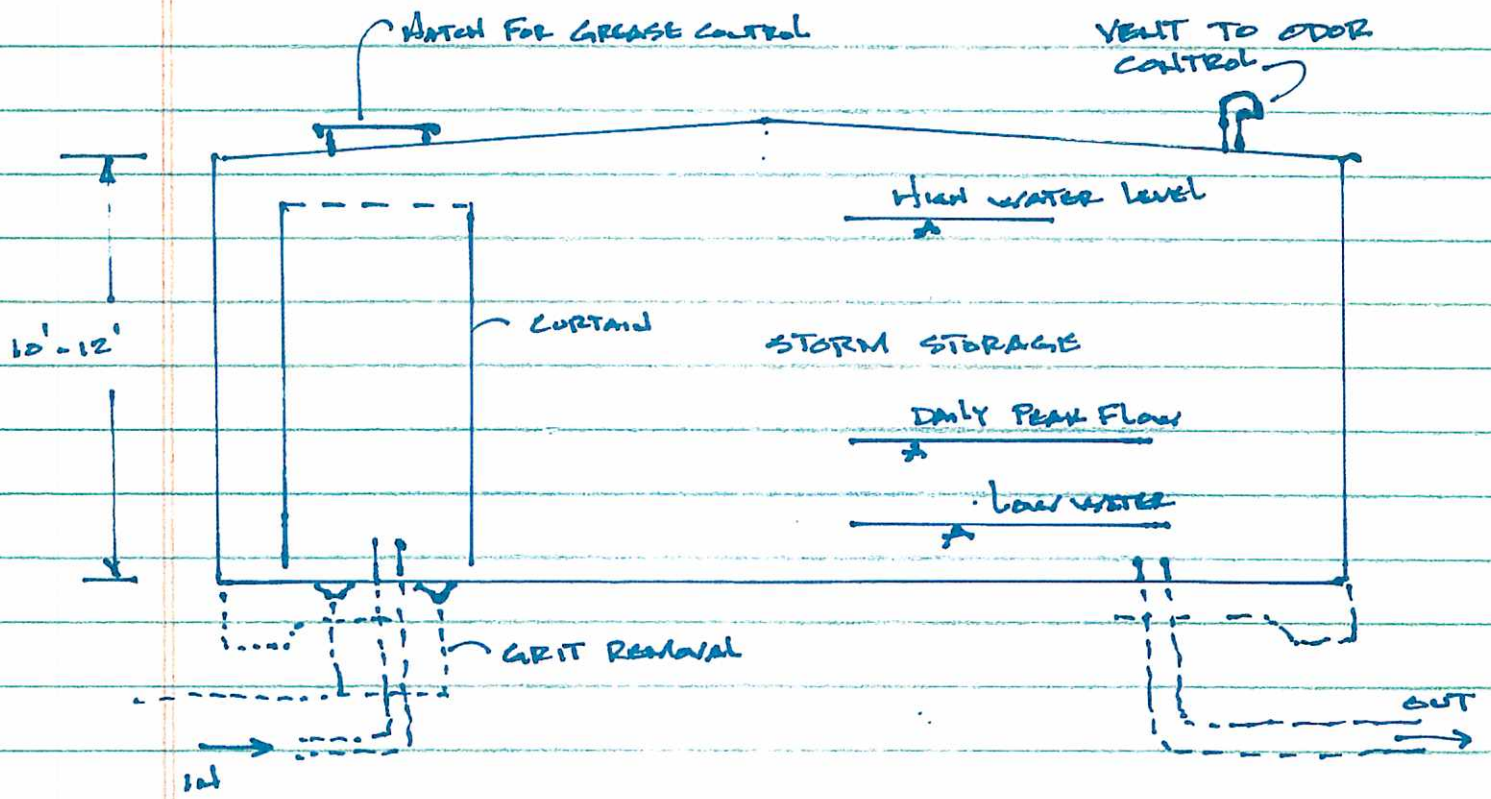 HATCH FOR GREASE CONTROL
VENT TO ODOR
CONTROL
HIGH WATER LEVEL
10'-12'
CURTAIN
STORM STORAGE
DAILY PEAK FLOW
LOW WATER
GRIT REMOVAL
OUT
IN